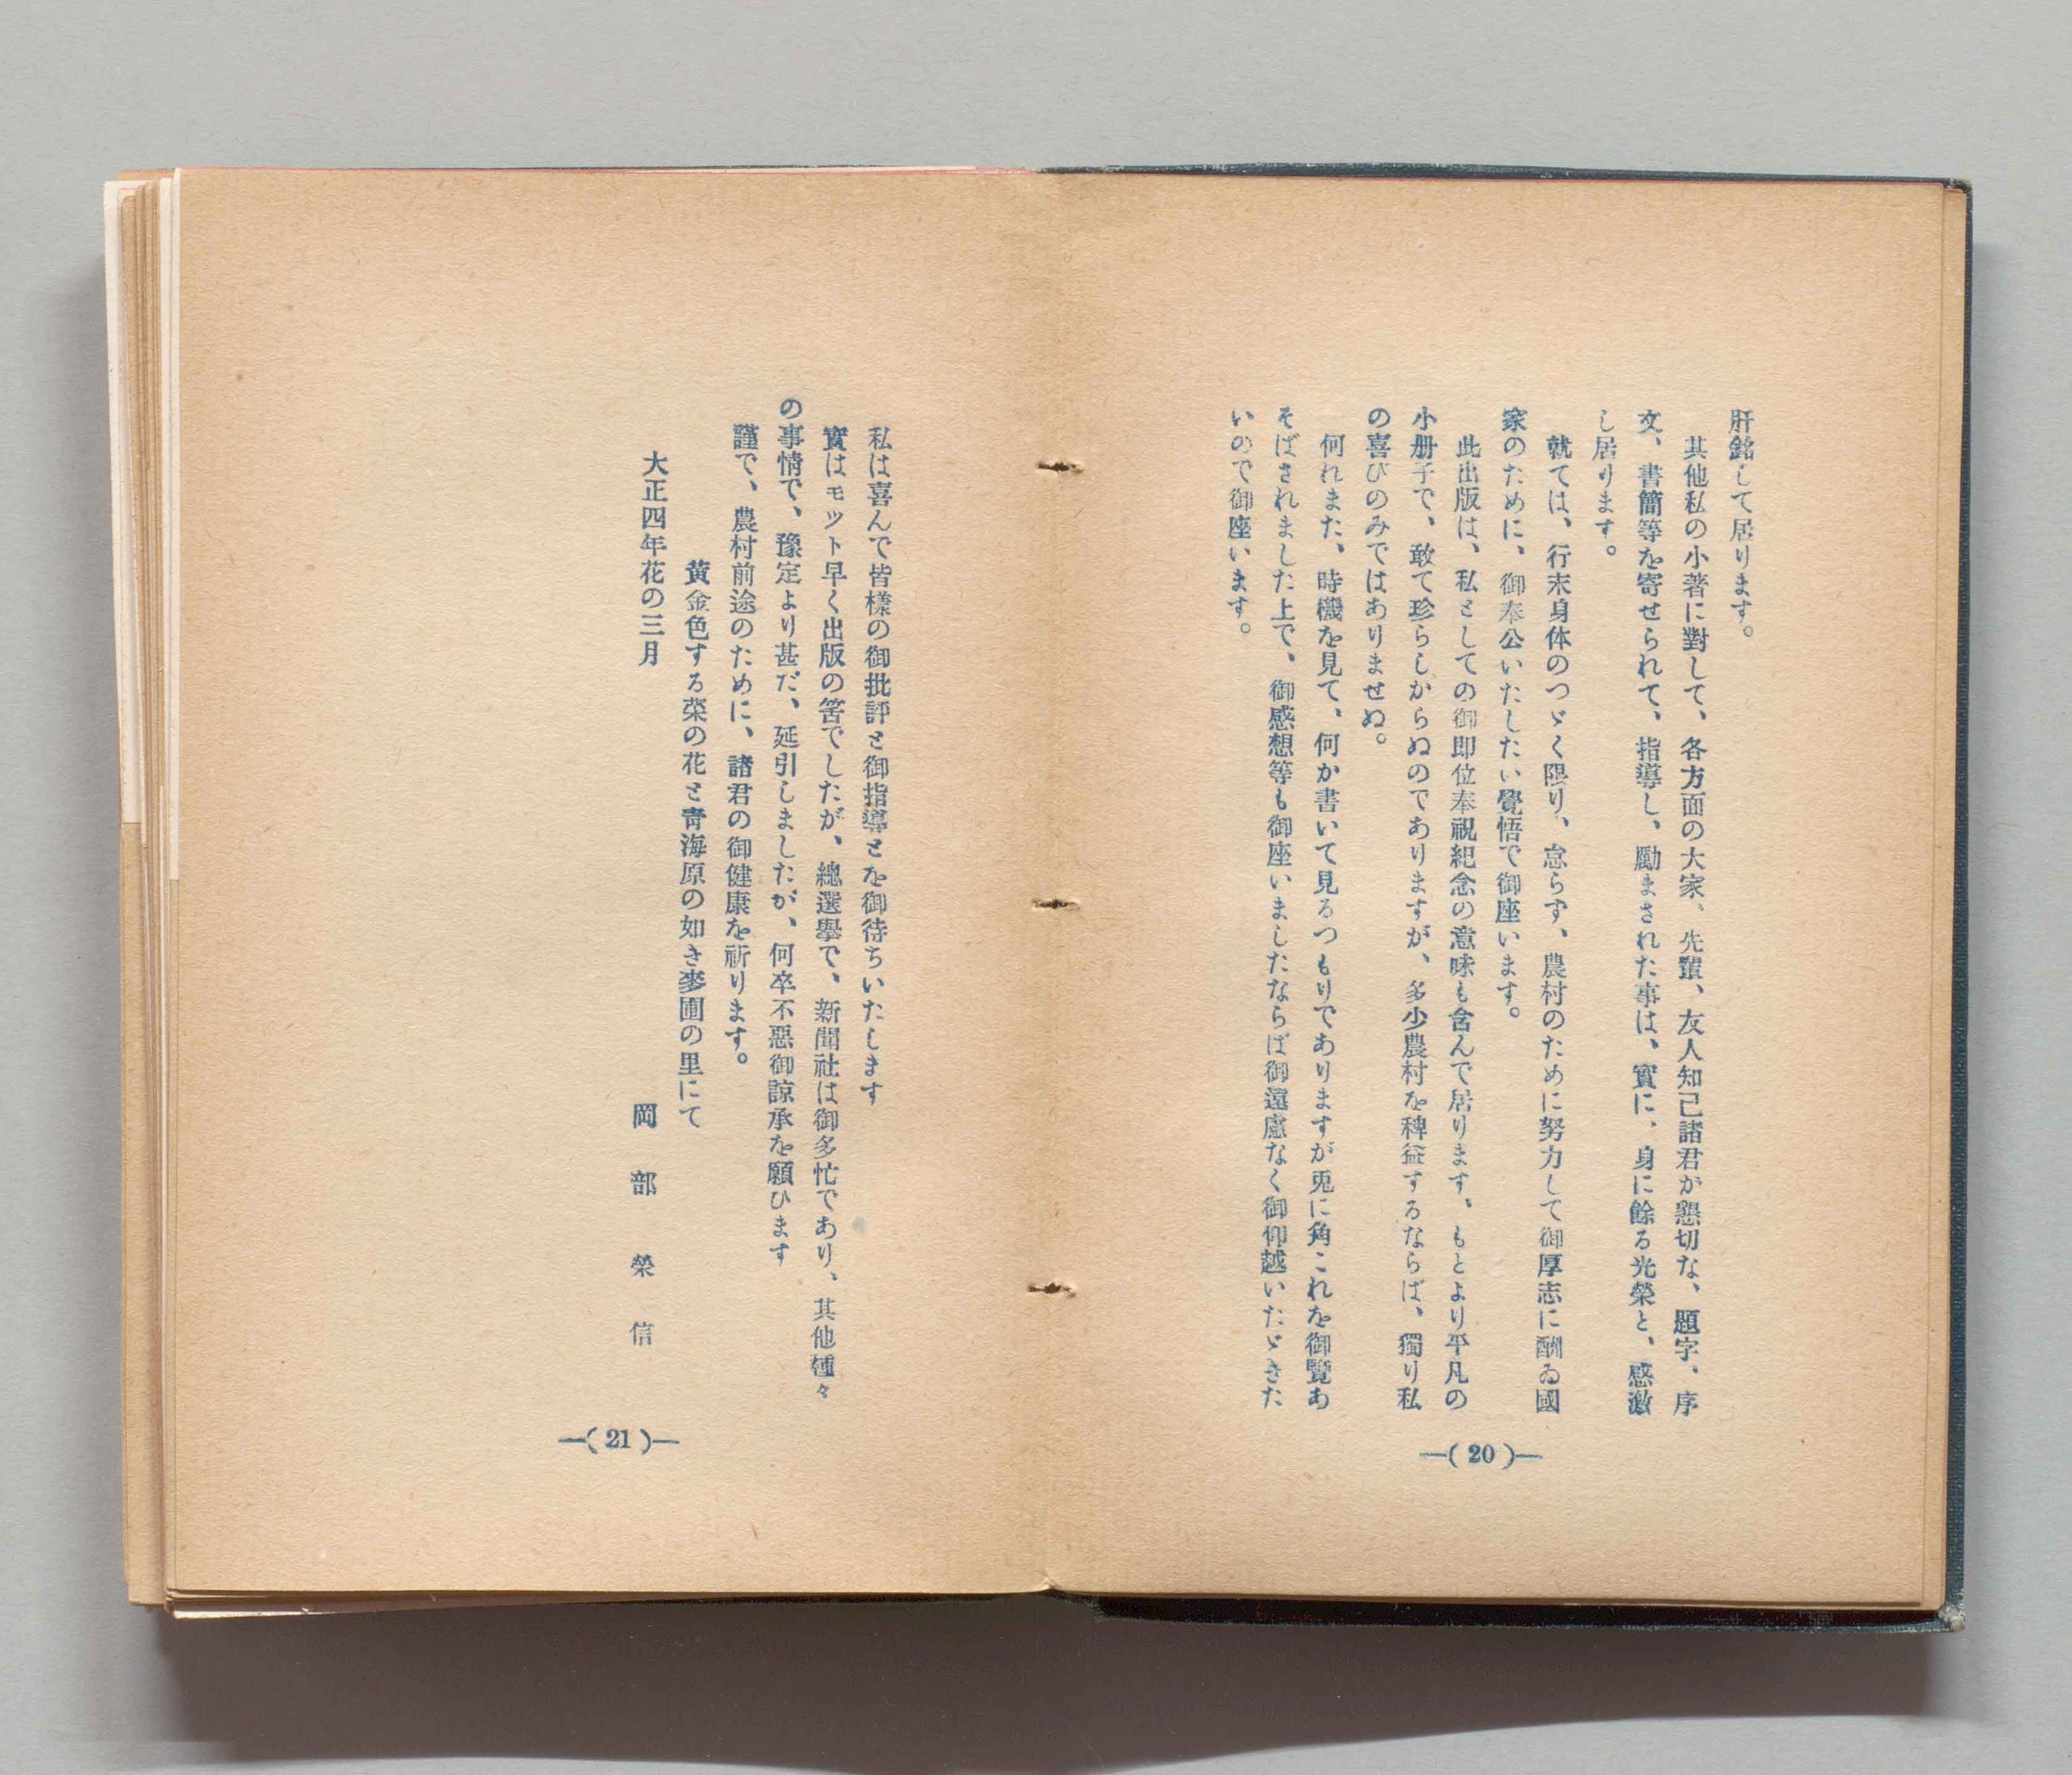 肝銘して居ります。
其他私の小著に對して、各方面の大家、先輩、友人知己諸君が懇切な、題字、序
文、書簡等を寄せられて、指導し、勵まされた事は、實に、身に餘る光榮と、感激
し居ります。
就ては、行末身体のつゞく限り、怠らず、農村のために努力して御厚志に酬ゐ國
家のために、御奉公いたしたい覺悟で御座います。
此出版は、私としての御即位奉祝紀念の意味も含んで居ります。もとより平凡の
小册子で、敢て珍らしからぬのでありますが、多少農村を稗益するならば、獨り私
の喜びのみではありませぬ。
何れまた、時機を見て、何か書いて見るつもりでありますが兎に角これを御覽あ
そばされました上で、御感想等も御座いましたならば御遠慮なく御仰越いたゞきた
いので御座います。
―(20)―
私は喜んで皆樣の御批評と御指導とを御待ちいたします
實はモット早く出版の筈でしたが、總選擧で、新聞社は御多忙であり、其他種々
の事情で、豫定より甚だ、延引しましたが、何卒不惡御諒承を願ひます
謹で、農村前途のために、諸君の御健康を祈ります。
黄金色する菜の花と靑海原の如き麥圃の里にて
大正四年花の三月
岡部榮信
―(21)―